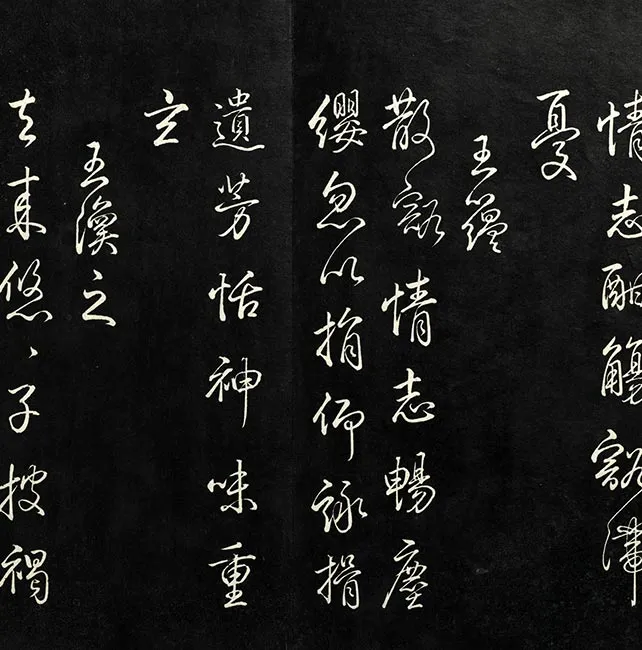 情志酣觴豁滯
憂
王蘊
散豁情志暢塵
纓忽以捐仰詠揖
遺芳恬神味重
玄
王渙之
去來悠〻子披褐